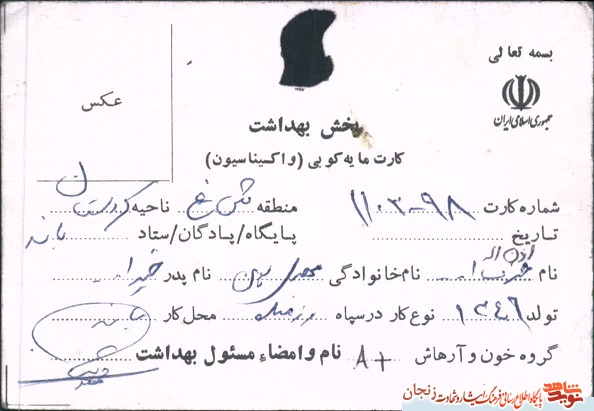 بسمه تعالی
جمهوری اسلامی ایران
عکس
بخش بهداشت
کارت مایه کوبی (واکسیناسیون)
شماره کارت ۱۱۰۳-۹۸ منطقه ناحیه کردستان
تاریخ پایگاه/پادگان/ستاد بانه
نام نام خانوادگی نام پدر
تولد ۱۳۴۶ نوع کار در سپاه رزمنده محل کار
گروه خون و آرهاش A+ نام و امضاء مسئول بهداشت
نوید شاهد پایگاه اطلاع رسانی فرهنگ ایثار و شهادت زنجان